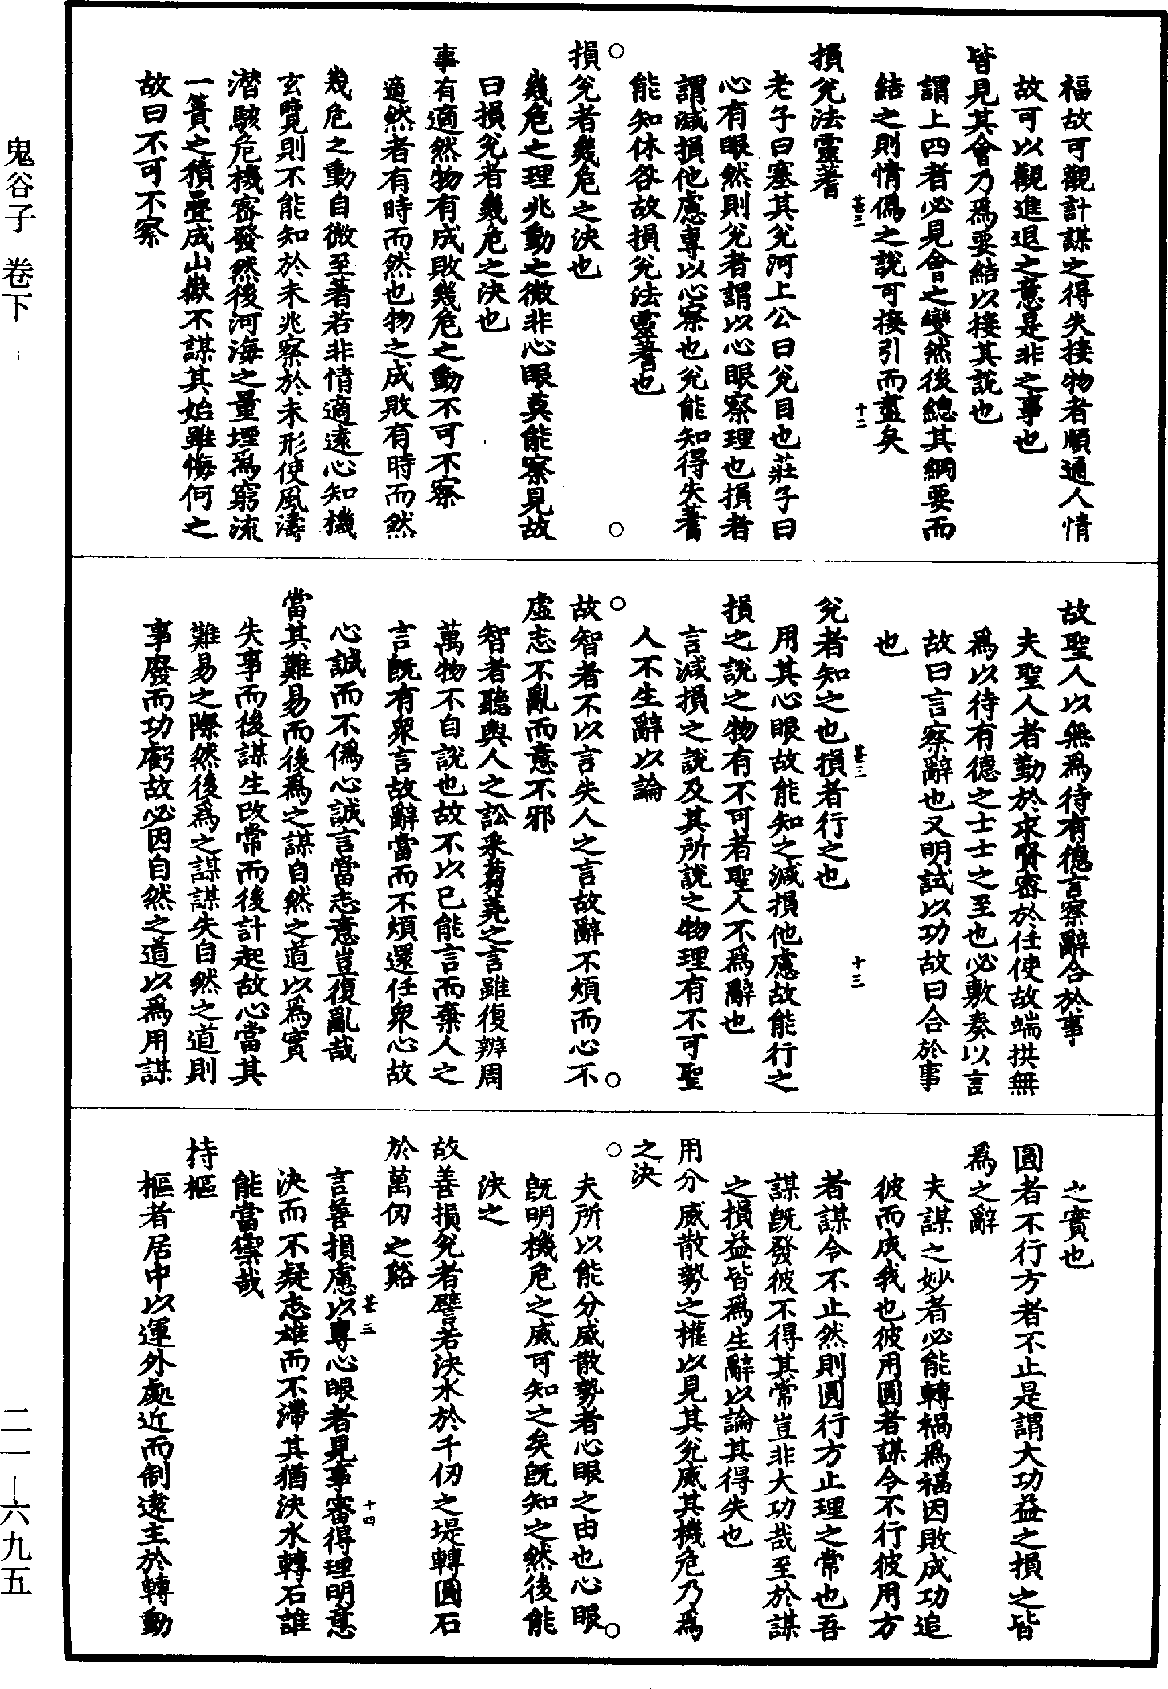 福故可觀計謀之得失接物者順通人情
故可以觀進退之意是非之事也
皆見其會乃爲要結以接其說也
謂上四者必見會之變然後總其綱要而
結之則情僞之說可接引而盡矣
甚三
十二
損兊法靈蓍
老子曰塞其兊河上公曰兊目也莊子曰
心有眼然則兊者謂以心眼察理也損者
謂減損他慮專以心察也兊能知得失蓍
能知休咎故損兊法靈蓍也
損兊者幾危之決也
幾危之理兆動之微非心眼莫能察見故
曰損兊者幾危之決也
事有適然物有成敗幾危之動不可不察
適然者有時而然也物之成敗有時而然
幾危之動自微至著若非情適遠心知機
玄覽則不能知於未兆察於未形使風濤
潜駭危機密發然後河海之量堙爲窮流
一簣之積疊成山嶽不謀其始雖悔何之
故曰不可不察
故聖人以無爲待有德言察辭合於事
夫聖人者勤於求賢密於任使故端拱無
爲以待有德之士士之至也必敷奏以言
故曰言察辭也又明試以功故曰合於事
也
甚三
十三
兊者知之也損者行之也
用其心眼故能知之減損他慮故能行之
損之說之物有不可者聖人不爲辭也
言減損之說及其所說之物理有不可聖
人不生辭以論
故智者不以言失人之言故辭不煩而心不
虛志不亂而意不邪
智者聽輿人之訟采蒭蕘之言雖復辨周
萬物不自說也故不以己能言而棄人之
言旣有衆言故辭當而不煩還任衆心故
心誠而不僞心誠言當志意豈復亂哉
當其難易而後爲之謀自然之道以爲實
失事而後謀生改常而後計起故心當其
難易之際然後爲之謀謀失自然之道則
事廢而功虧故必因自然之道以爲用謀
之實也
圓者不行方者不止是謂大功益之損之皆
爲之辭
夫謀之妙者必能轉禍爲福因敗成功追
彼而成我也彼用圓者謀令不行彼用方
者謀令不止然則圓行方止理之常也吾
謀旣發彼不得其常豈非大功哉至於謀
之損益皆爲生辭以論其得失也
用分威散勢之權以見其兊威其機危乃爲
之決
夫所以能分威散勢者心眼之由也心眼
旣明機危之威可知之矣旣知之然後能
決之
故善損兊者譬若決水於千仞之堤轉圓石
於萬仞之谿
甚三
十四
言善損慮以專心眼者見事審得理明意
決而不凝志雄而不滯其猶決水轉石誰
能當禦哉
持樞
樞者居中以運外處近而制遠主於轉動
鬼谷子 卷下
二一—六九五